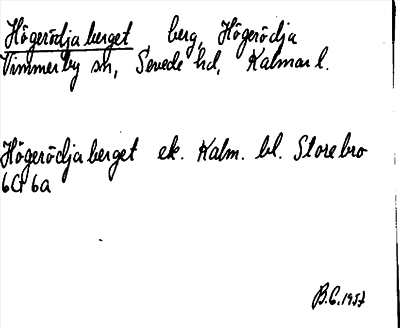 Högerödjaberget berg, Högerödja
Vimmerby sn, Sevede hd, Kalmar l.
Högerödjaberget ek. Kalm. bl. Storebro
6G 6a
B.C. 1957